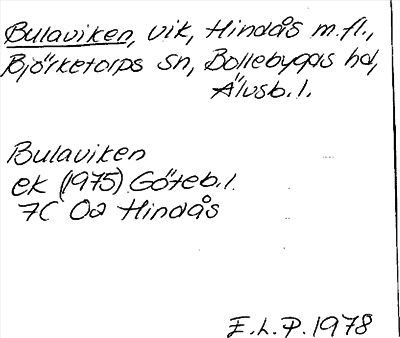 Bulaviken, vik, Hindås m.fl.,
Björketorps sn, Bollebygds hd,
Älvsb. l.
Bulaviken
ek (1975) Göteb. l.
7C 0a Hindås
E. L. P. 1978